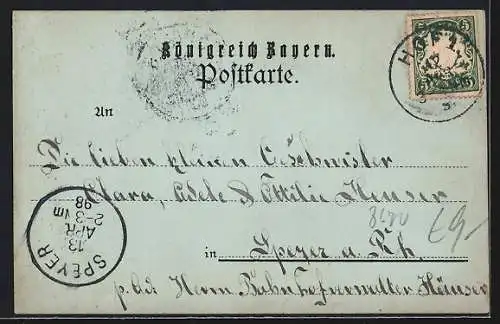 Königreich Bayern.
Postkarte.
HOF 1
12
5 5
An
Die lieben kleinen Geschwister
Clara, Adele & Ottilie Heuser
in Speyer a. Rh.
p. Adr. Herrn Bahnhofverwalter Häuser
SPEYER
13
APR
2-3 Nm
98
€9,-